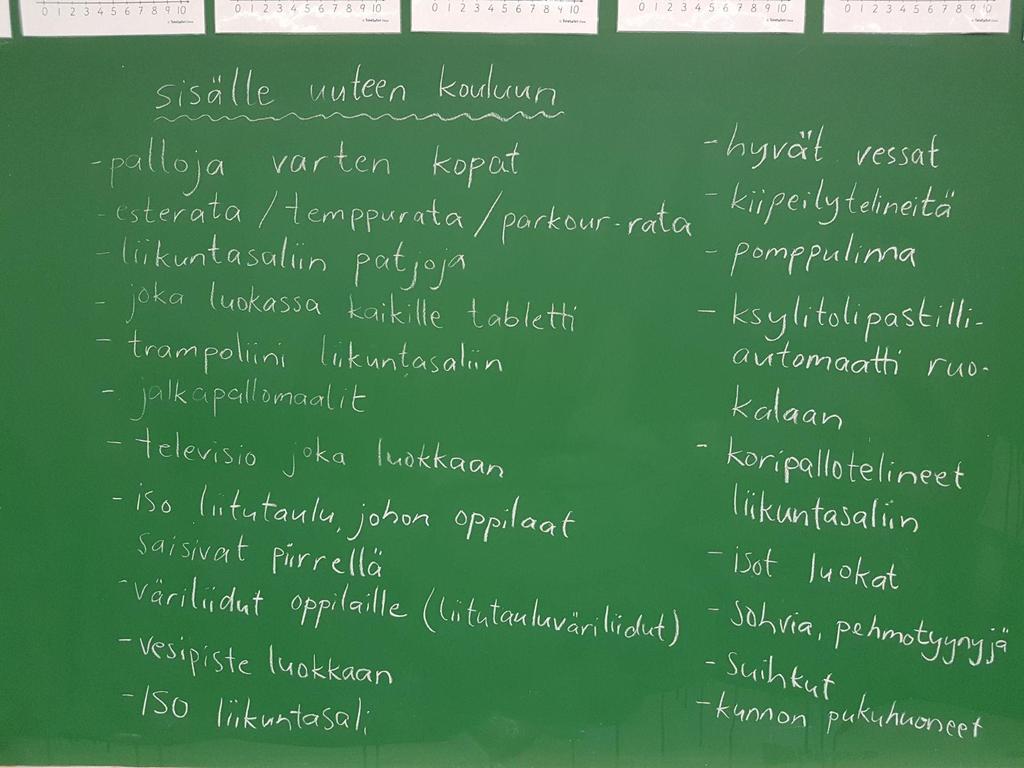 0 1 2 3 4 5 6 7 8 9 10
0 1 2 3 4 5 6 7 8 9 10
0 1 2 3 4 5 6 7 8 9 10
0 1 2 3 4 5 6 7 8 9 10
0 1 2 3 4 5 6 7 8 9 10
sisälle uuteen kouluun
- palloja varten kopat
- esterata / temppurata / parkour-rata
- liikuntasaliin patjoja
- joka luokassa kaikille tabletti
- trampoliini liikuntasaliin
- jalkapallomaalit
- televisio joka luokkaan
- iso liitutaulu, johon oppilaat
saisivat piirrellä
- väriliidut oppilaille (liitutauluväriliidut)
- vesipiste luokkaan
- ISO liikuntasali
- hyvät vessat
- kiipeilytelineitä
- pomppulinna
- ksylitolipastilli-
automaatti ruo-
kalaan
- koripallotelineet
liikuntasaliin
- isot luokat
- sohvia, pehmotyynyjä
- suihkut
- kunnon pukuhuoneet